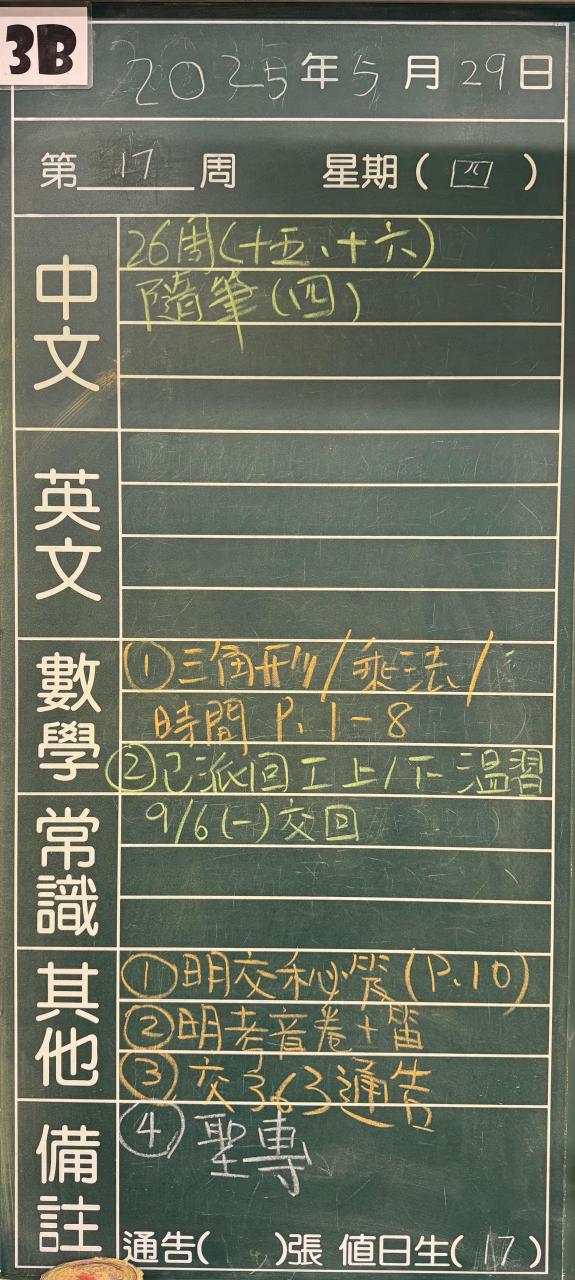 3B
2025年5月29日
第17周 星期(四)
中文
26周(十五、十六)
隨筆(四)
英文
數學
①三角形/乘法/
時間 P.1-8
②已派回工上/下 溫習
9/6(一)交回
常識
其他
①明交秘笈(P.10)
②明考音卷+笛
③交363通告
備註
④聖專
通告( )張 值日生(17)